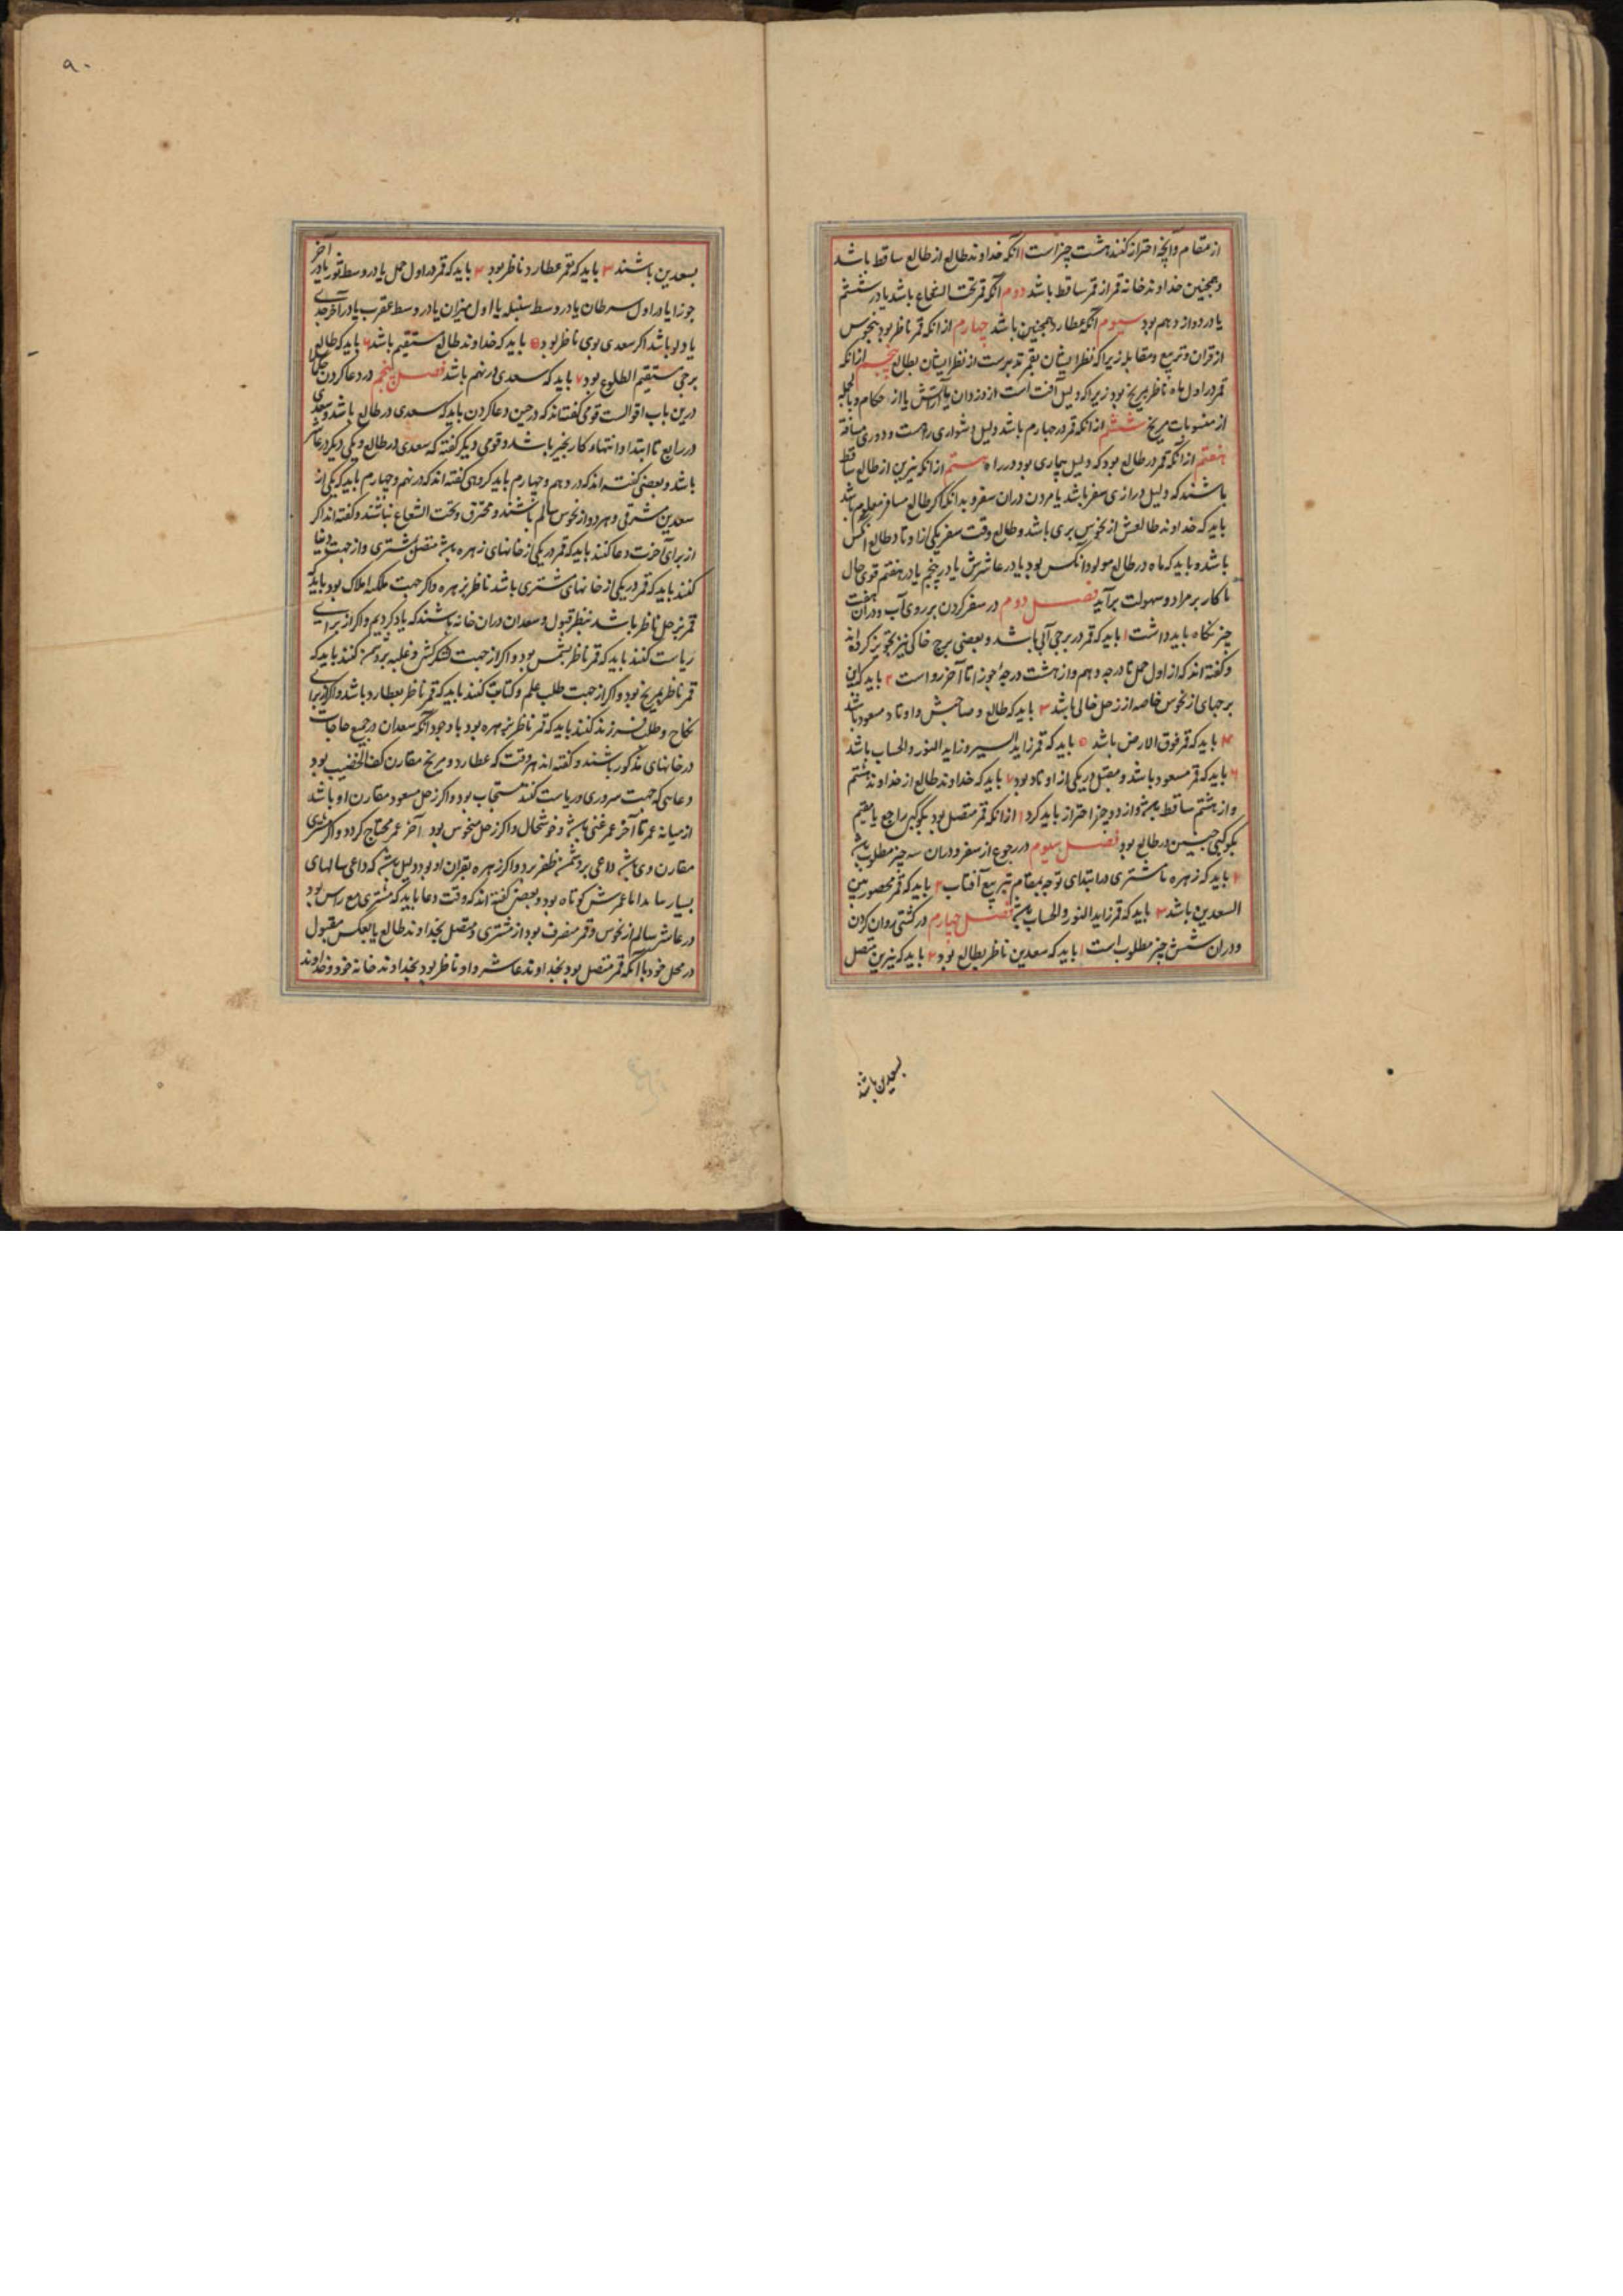 از مقام و آنچه احتراز کنند هشت چیز است ۱ آنکه خداوند طالع از طالع ساقط باشد
و همچنین خداوند خانه قمر از قمر ساقط باشد دوم آنکه قمر تحت الشعاع باشد یا در ششم
یا در دوازدهم بود سیوم آنکه عطارد همچنین باشد چهارم از انکه قمر ناظر بود بنحوس
از قران و تربیع و مقابله زیرا که نظر ایشان بقمر بتر است از نظر ایشان بطالع پنجم از انکه
قمر در اول ماه ناظر بمریخ بود زیرا که دلیل آفت است از دزدان یا آتش یا از حکام و بالجمله
از منسوبات مریخ ششم از انکه قمر در چهارم باشد دلیل دشواری راهست و دوری مسافة
هفتم از انکه قمر در طالع بود که دلیل بیماری بود در راه هشتم از انکه نیرین از طالع ساقط
باشند که دلیل درازی سفر باشد یا مردن دران سفر و بدانکه اکر طالع مسافر معلوم باشد
باید که خداوند طالعش از نحوس بری باشد و طالع وقت سفر یکی از اوتاد طالع آنکس
باشد و باید که ماه در طالع مولود انکس بود یا در عاشرش یا در پنجم یا در هفتم قوی حال
تا کار بر مراد و سهولت برآید فصل دوم در سفر کردن بر روی آب و دران هفت
چیز نکاه باید داشت ۱ باید که قمر در برجی آبی باشد و بعضی برج خاکی نیز تجویز کرده‌اند
و کفته اند که از اول حمل تا درجه دهم و از هشت درجهٔ جوزا تا آخر رواست ۲ باید که این
برجهای از نحوس خاصه از زحل خالی باشد ۳ باید که طالع و صاحبش و اوتاد مسعود باشد
۴ باید که قمر فوق الارض باشد ۵ باید که قمر زاید السیر و زاید النور والحساب باشد
۶ باید که قمر مسعود باشد و مقبل در یکی از اوتاد بود ۷ باید که خداوند طالع از خداوند هشتم
و از هشتم ساقط باشد و از دو چیز احتراز باید کرد ۱ از انکه قمر متصل بود بکوکبی راجع یا مقیم
بکوکبی در طالع بود فصل سیوم در رجوع از سفر و دران سه چیز مطلوب باشد
۱ باید که زهره تا مشتری در ابتدای توجه بمقام بتربیع آفتاب ۲ باید که قمر محصور بین
السعدین باشد ۳ باید که قمر زاید النور والحساب باشد فصل چهارم در کشتی روان کردن
و دران شش چیز مطلوب است ۱ باید که سعدین ناظر بطالع بود ۲ باید که نیرین متصل
بسعدین باشند
۹۰
بسعدین باشند ۳ باید که بقمر عطارد ناظر بود ۴ باید که قمر در اول حمل یا در وسط ثور یا در آخر
جوزا یا در اول سرطان یا در وسط سنبله یا اول میزان یا در وسط عقرب یا در آخر جدی
یا دلو باشد اکر سعدی بوی ناظر بود ۵ باید که خداوند طالع مستقیم باشد ۶ باید که طالع
برجی مستقیم الطلوع بود ۷ باید که سعدی در نهم باشد فصل پنجم در دعا کردن
درین باب اقوالست قومی کفته‌اند که در حین دعا کردن باید که سعدی در طالع باشد و سعدی
در رابع تا ابتدا و انتهاء کار بخیر باشد و قومی دیکر کفته که سعدی در طالع و یکی دیکر در عاشر
باشد و بعضی کفته‌اند که در دهم و چهارم باید کروهی کفته اند که در نهم و چهارم باید که یکی از
سعدین مشرقی و هر دو از نحوس سالم باشند و محترق و تحت الشعاع نباشند و کفته اند اکر
از برای آخرت دعا کنند باید که قمر در یکی از خانهای زهره باشد متصل بمشتری و از جهت دنیا
کنند باید که قمر در یکی از خانهای مشتری باشد ناظر بزهره و اکر جهت ملک و املاک بود باید که
قمر بزحل ناظر باشد بنظر قبول و سعدان دران خانه باشند که یاد کردیم و اکر از برای
ریاست کنند باید که قمر ناظر بشمس بود و اکر از جهت لشکرکشی و غلبه بر دشمن کنند باید که
قمر ناظر بمریخ بود و اکر از جهت طلب علم و کتابت کنند باید که قمر ناظر بعطارد باشد و اکر از برای
نکاح و طلب فرزند کنند باید که قمر ناظر بزهره بود با وجود آنکه سعدان در جمیع حاجات
در خانهای مذکور باشند و کفته اند هر وقت که عطارد و مریخ مقارن کف الخضیب بود
دعایی که جهت سروری و ریاست کنند مستجاب بود و اکر زحل مسعود مقارن او باشد
از میانه عمر تا آخر عمر غنی باشد و خوشحال و اکر زحل منحوس بود آخر عمر محتاج کردد و اکر مشتری
مقارن وی باشد داعی بر دشمن ظفر برد و اکر زهره بقران او بود دلیل باشد که داعی سالهای
بسیار بماند اما عمرش کوتاه بود و بعضی کفته اند که وقت دعا باید که مشتری مع راس بود
در عاشر سالم از نحوس و قمر منصرف بود از مشتری و متصل بخداوند طالع یا بعکس مقبول
در محل خود با آنکه قمر متصل بود بخداوند عاشر و او ناظر بود بخداوند خانه خود و خداوند